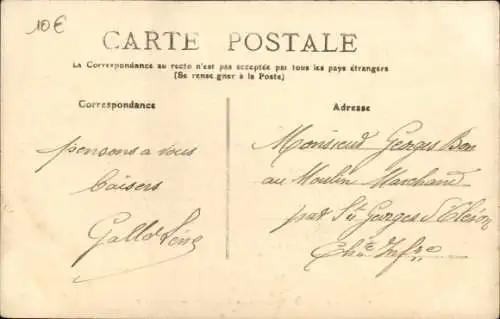 10€
CARTE POSTALE
La Correspondance au recto n'est pas acceptée par tous les pays étrangers
(Se renseigner à la Poste)
Correspondance
Adresse
pensons a vous
baisers
Monsieur Georges Bon
au Moulin Marchand
par St Georges d'Oleron
Chte Infre